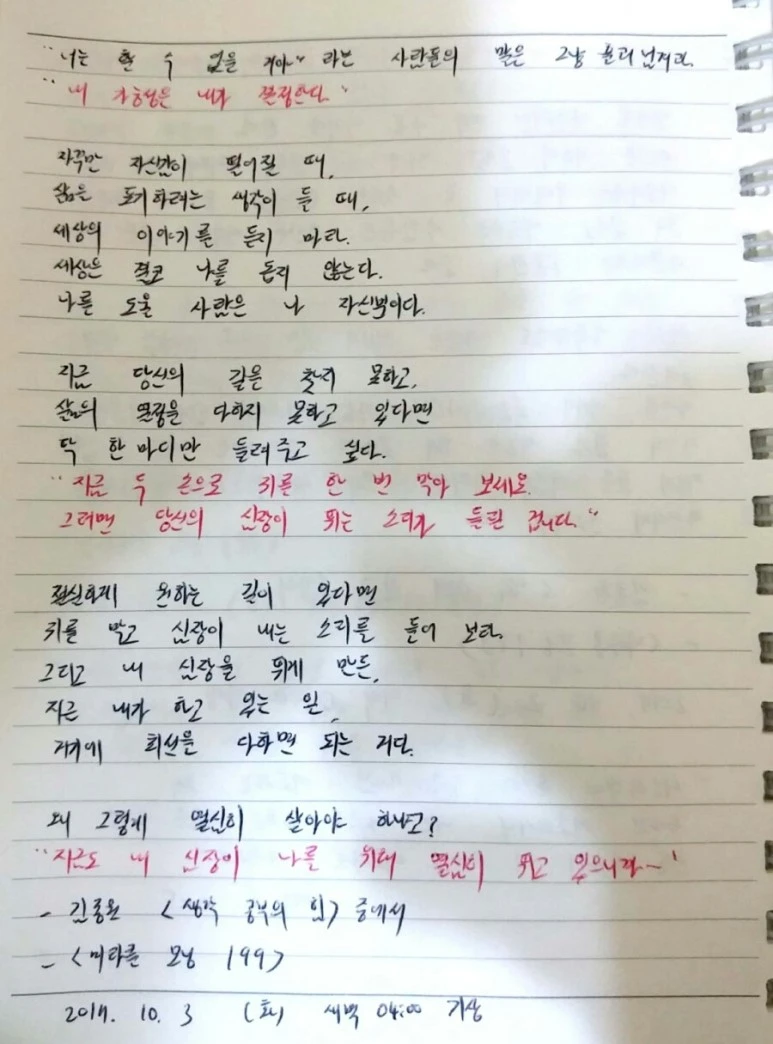 "너는 할 수 없을 거야" 라는 사람들의 말은 그냥 흘려 넘겨라.
"내 가능성은 내가 결정한다."
자꾸만 자신감이 떨어질 때,
삶을 포기하려는 생각이 들 때,
세상의 이야기를 듣지 마라.
세상은 결코 나를 돕지 않는다.
나를 도울 사람은 나 자신뿐이다.
지금 당신의 길을 찾지 못하고,
삶의 열정을 다하지 못하고 있다면
딱 한 마디만 들려주고 싶다.
"지금 두 손으로 귀를 한 번 막아 보세요.
그러면 당신의 심장이 뛰는 소리가 들릴 겁니다."
절실하게 원하는 길이 있다면
귀를 막고 심장이 내는 소리를 들어 보라.
그리고 내 심장을 뛰게 만든,
지금 내가 하고 있는 일,
거기에 최선을 다하면 되는 거다.
왜 그렇게 열심히 살아야 하냐고?
"지금도 내 심장이 나를 위해 열심히 뛰고 있으니까~"
- 김종원 <생각 공부의 힘> 중에서
- <미라클 모닝 199>
2017. 10. 3 (화) 새벽 04:00 기상